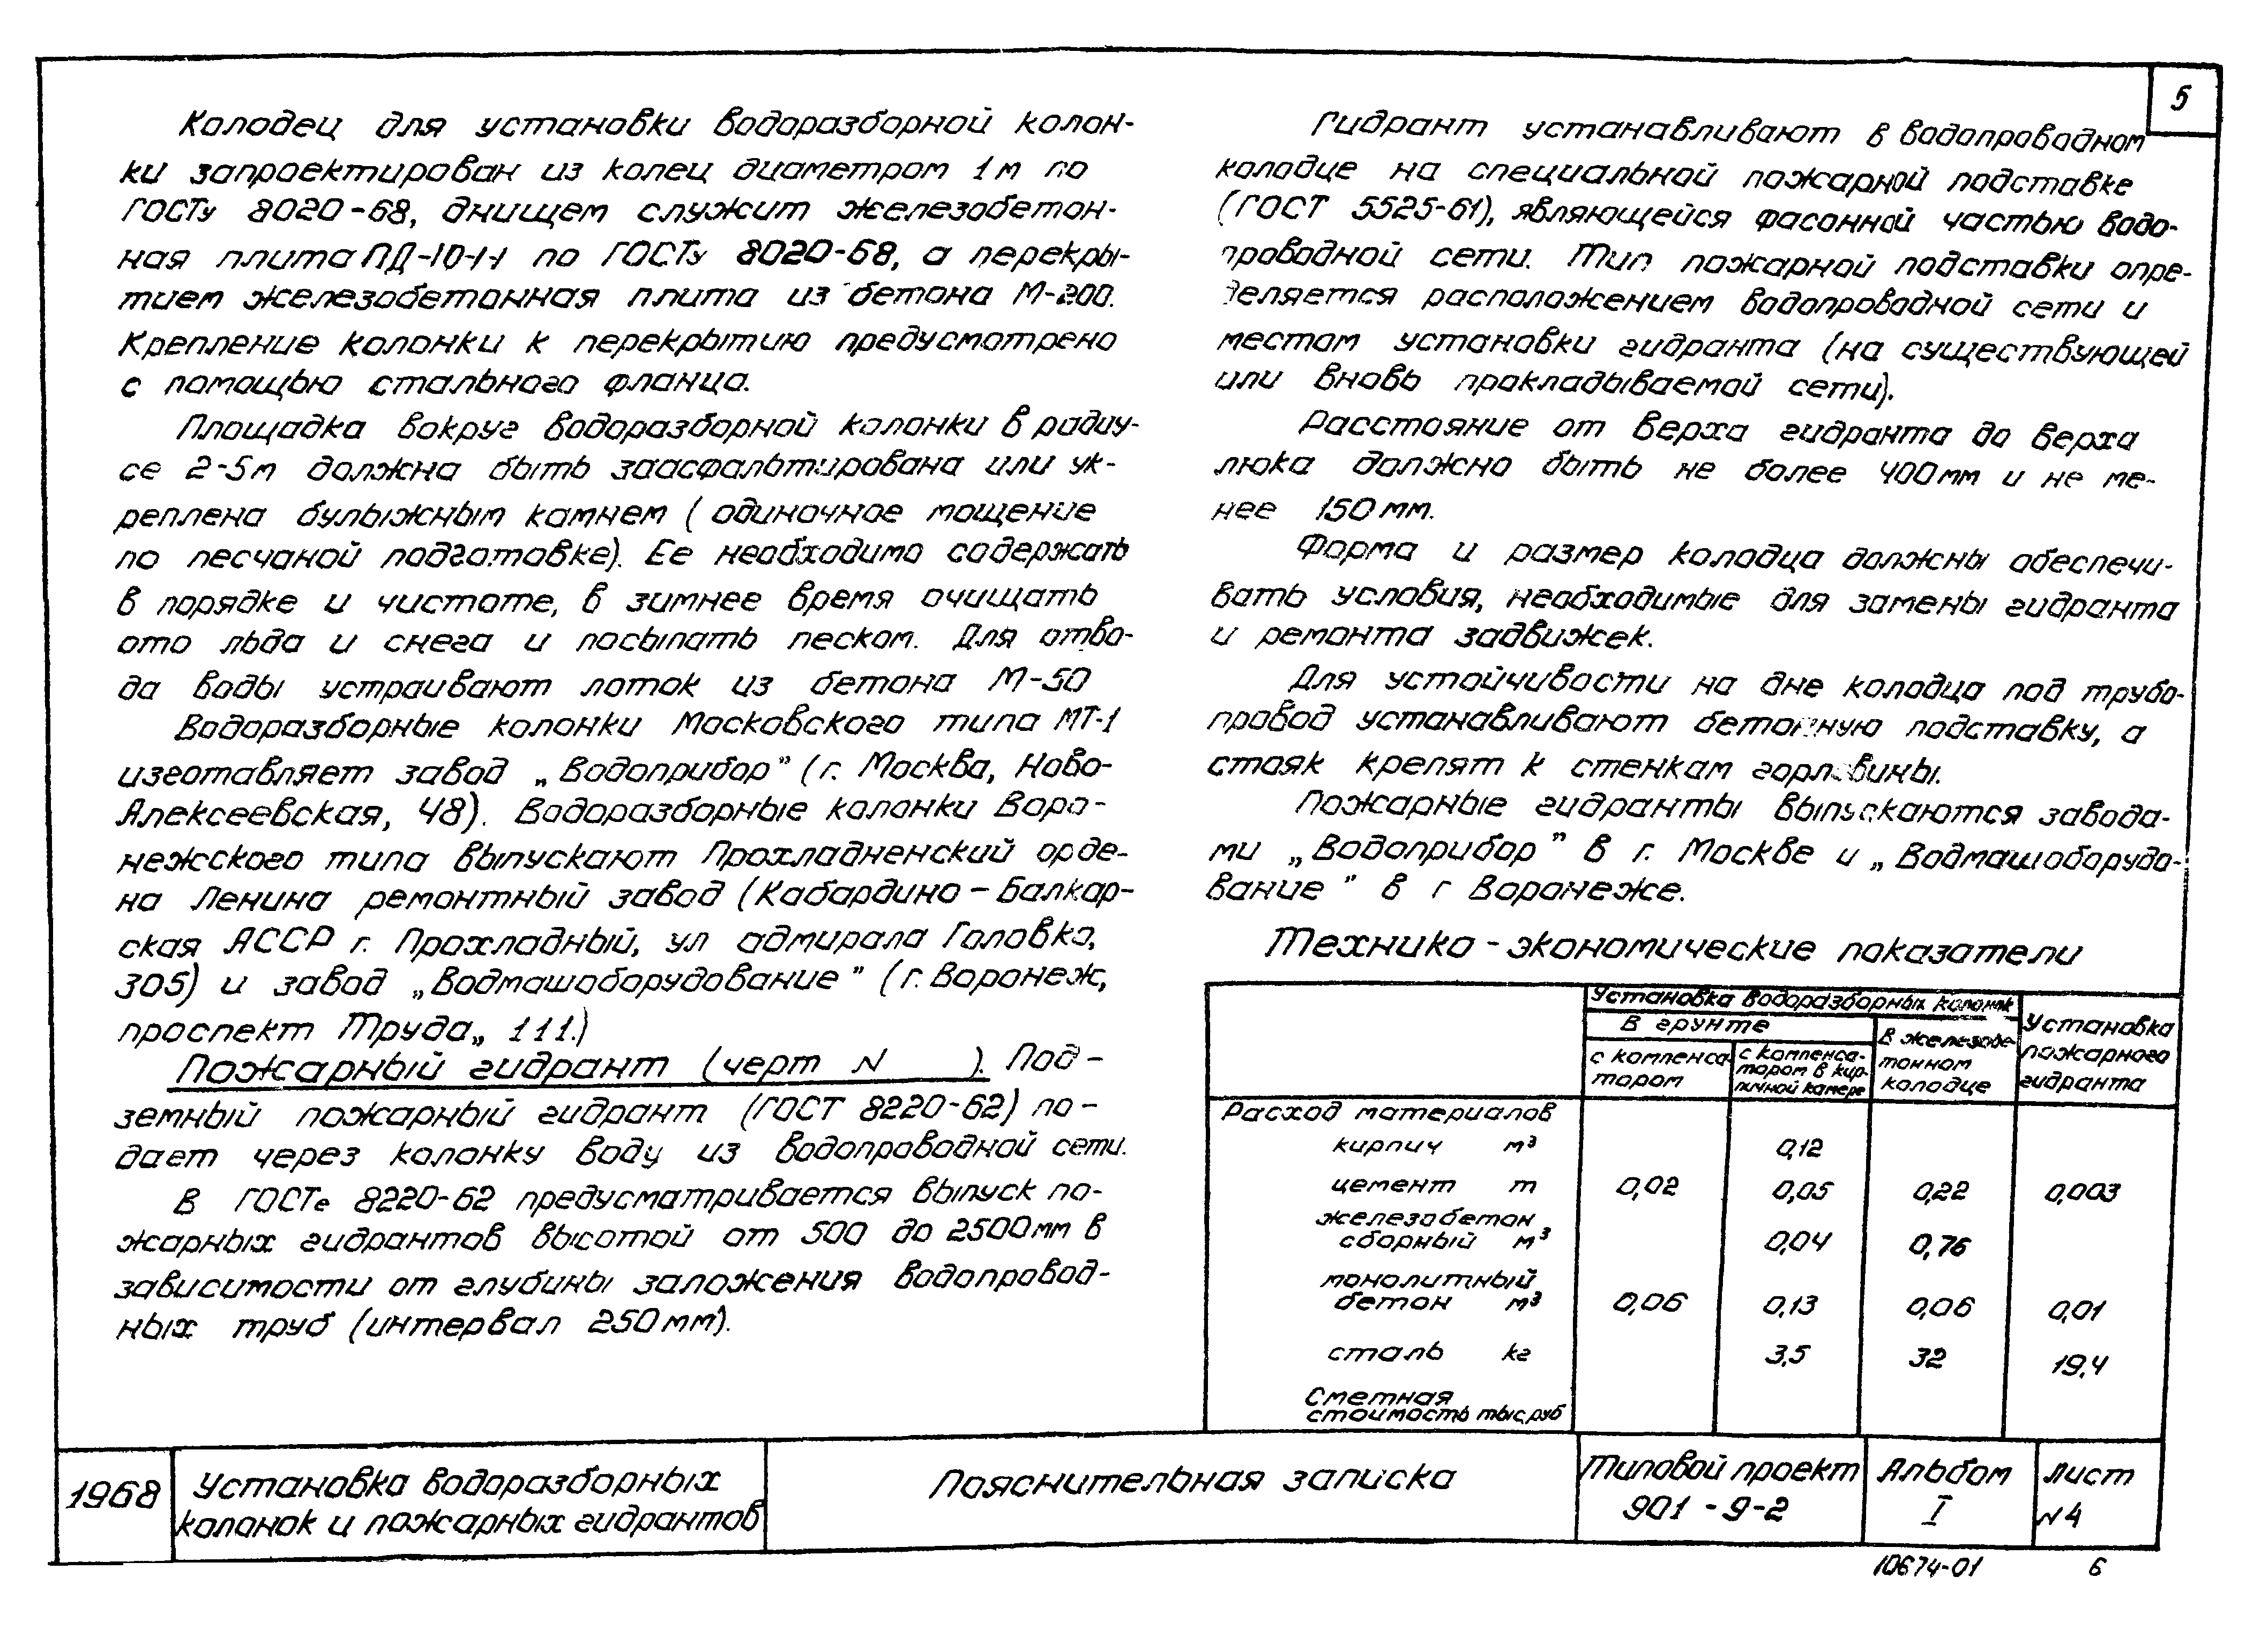 5
Колодец для установки водоразборной колон-
ки запроектирован из колец диаметром 1м по
ГОСТу 8020-68, днищем служит железобетон-
ная плита ПД-10-1-1 по ГОСТу 8020-68, а перекры-
тием железобетонная плита из бетона М-200.
Крепление колонки к перекрытию предусмотрено
с помощью стального фланца.
Площадка вокруг водоразборной колонки в радиу-
се 2-5м должна быть заасфальтирована или ук-
реплена булыжным камнем ( одиночное мощение
по песчаной подготовке). Ее необходимо содержать
в порядке и чистоте, в зимнее время очищать
ото льда и снега и посыпать песком. Для отво-
да воды устраивают лоток из бетона М-50
Водоразборные колонки Московского типа МТ-1
изготавляет завод „Водоприбор" (г. Москва, Ново-
Алексеевская, 48). Водоразборные колонки Воро-
нежского типа выпускают Прохладненский орде-
на Ленина ремонтный завод (Кабардино-Балкар-
ская АССР г. Прохладный, ул адмирала Головко,
305) и завод „Водмашоборудование" (г. Воронеж,
проспект Труда„ 111.)
Пожарный гидрант (черт N ). Под-
земный пожарный гидрант (ГОСТ 8220-62) по-
дает через колонку воду из водопроводной сети.
В ГОСТе 8220-62 предусматривается выпуск по-
жарных гидрантов высотой от 500 до 2500мм в
зависимости от глубины заложения водопровод-
ных труб (интервал 250мм).
Гидрант устанавливают в водопроводном
колодце на специальной пожарной подставке
(ГОСТ 5525-61), являющейся фасонной частью водо-
проводной сети. Тип пожарной подставки опре-
деляется расположением водопроводной сети и
местом установки гидранта (на существующей
или вновь прокладываемой сети).
Расстояние от верха гидранта до верха
люка должно быть не более 400мм и не ме-
нее 150мм.
Форма и размер колодца должны обеспечи-
вать условия, необходимые для замены гидранта
и ремонта задвижек.
Для устойчивости на дне колодца под трубо-
провод устанавливают бетонную подставку, а
стояк крепят к стенкам горловины.
Пожарные гидранты выпускаются завода-
ми „Водоприбор" в г. Москве и „Водмашоборудо-
вание" в г Воронеже.
Технико-экономические показатели
Установка водоразборных колонок
Установка
пожарного
гидранта
В грунте
В железобе-
тонном
колодце
с компенса-
тором
с компенса-
тором в кир-
пичной камере
Расход материалов
кирпич м³ 0,12
цемент т 0,02 0,05 0,22 0,003
железобетон
сборный м³ 0,04 0,76
монолитный
бетон м³ 0,06 0,13 0,06 0,01
сталь кг 3,5 32 19,4
Сметная
стоимость тыс.руб
1968
Установка водоразборных
колонок и пожарных гидрантов
Пояснительная записка
Типовой проект
901-9-2
Альбом
I
Лист
N4
10674-01 6